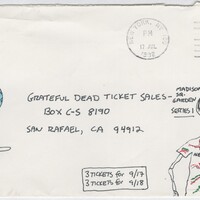 NEW YORK, NY
PM
11 JUL
MADISON
SQ.
GARDEN
SERIES 1
GRATEFUL DEAD TICKET SALES-
BOX C-S 8190
SAN RAFAEL, CA 94912
3 TICKETS for 9/17
3 TICKETS for 9/18